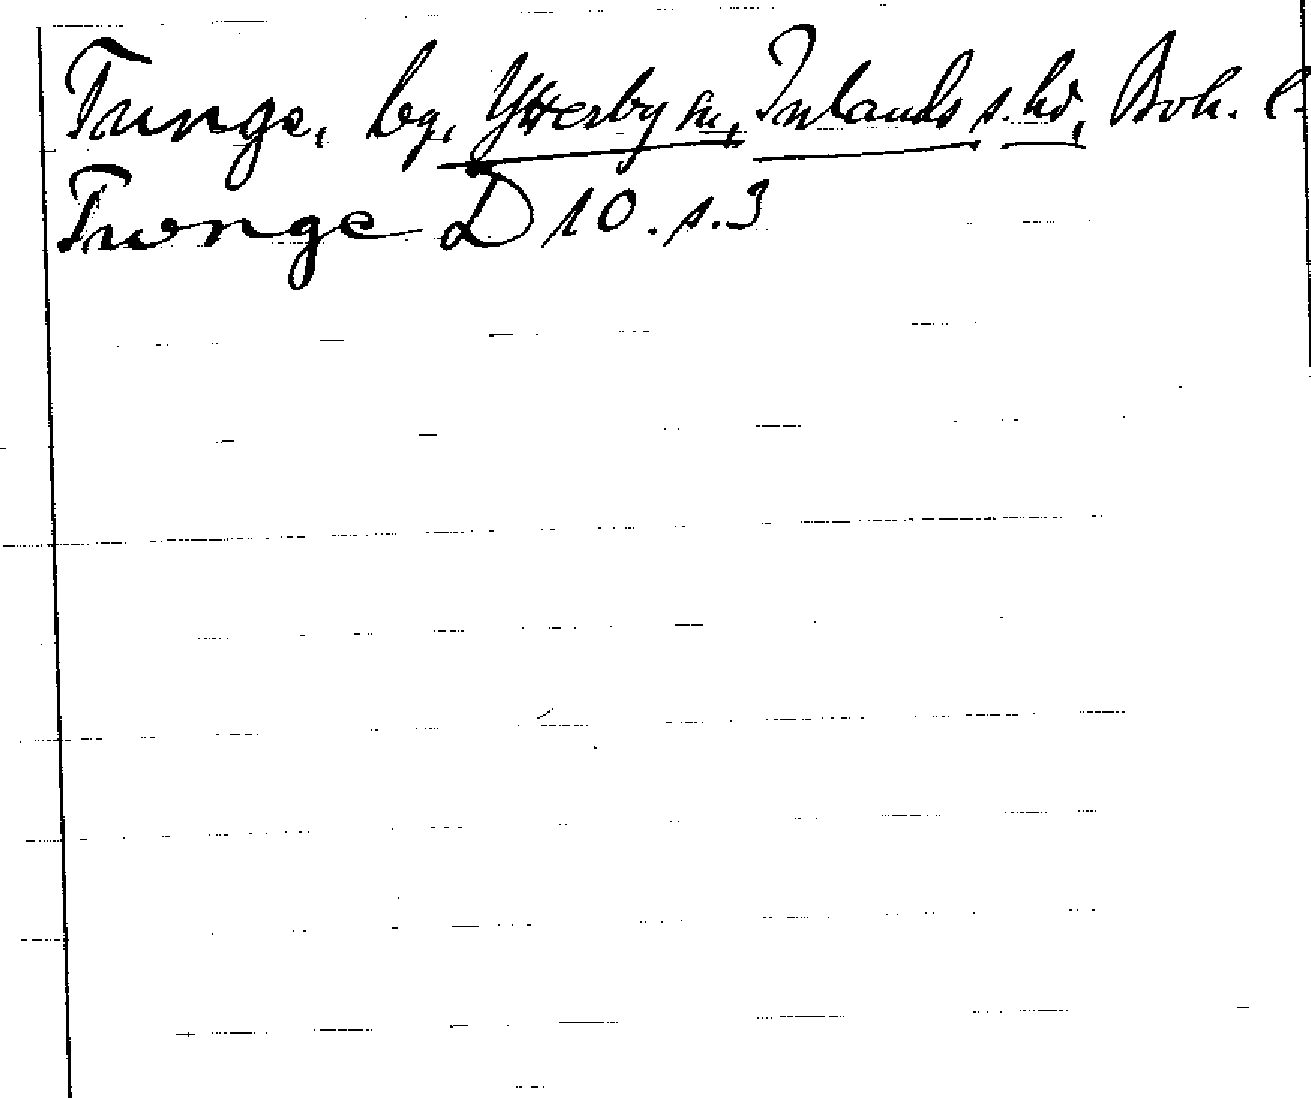 Tunge, by, Ytterby sn, Inlands s. hd, Boh. l.
Twnge D 10. s. 3